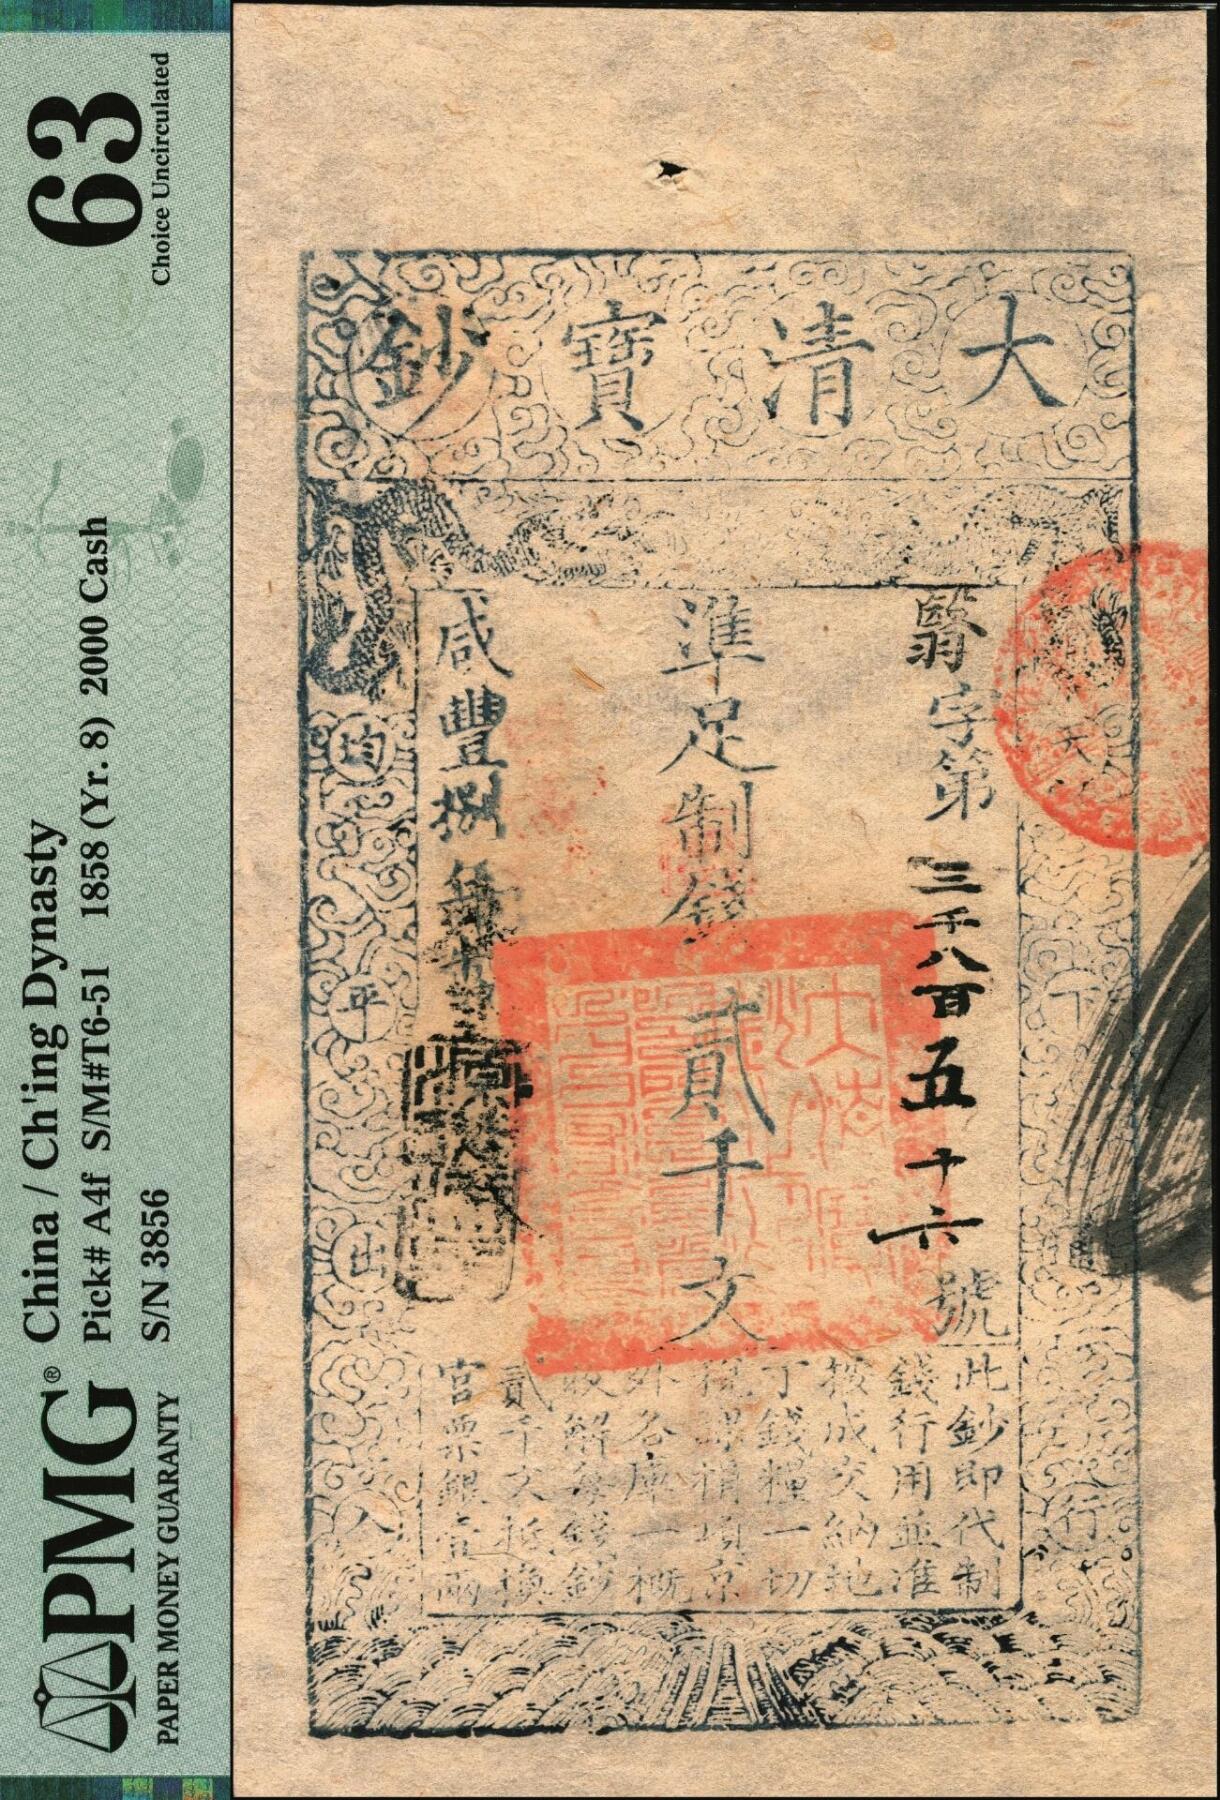 China / Ch'ing Dynasty
Pick# A4f S/M#T6-51 1858 (Yr. 8) 2000 Cash
S/N 3856
63
Choice Uncirculated
PMG®
PAPER MONEY GUARANTY
大清寶鈔
天下
行
均平出
翳字第三千八百五十六號
準足制錢貳千文
咸豐捌年
此鈔即代制
錢行用並准
按成交納地
丁錢糧一切
稅課捐項京
外各庫一概
收解每錢鈔
貳千文抵換
官票銀壹兩